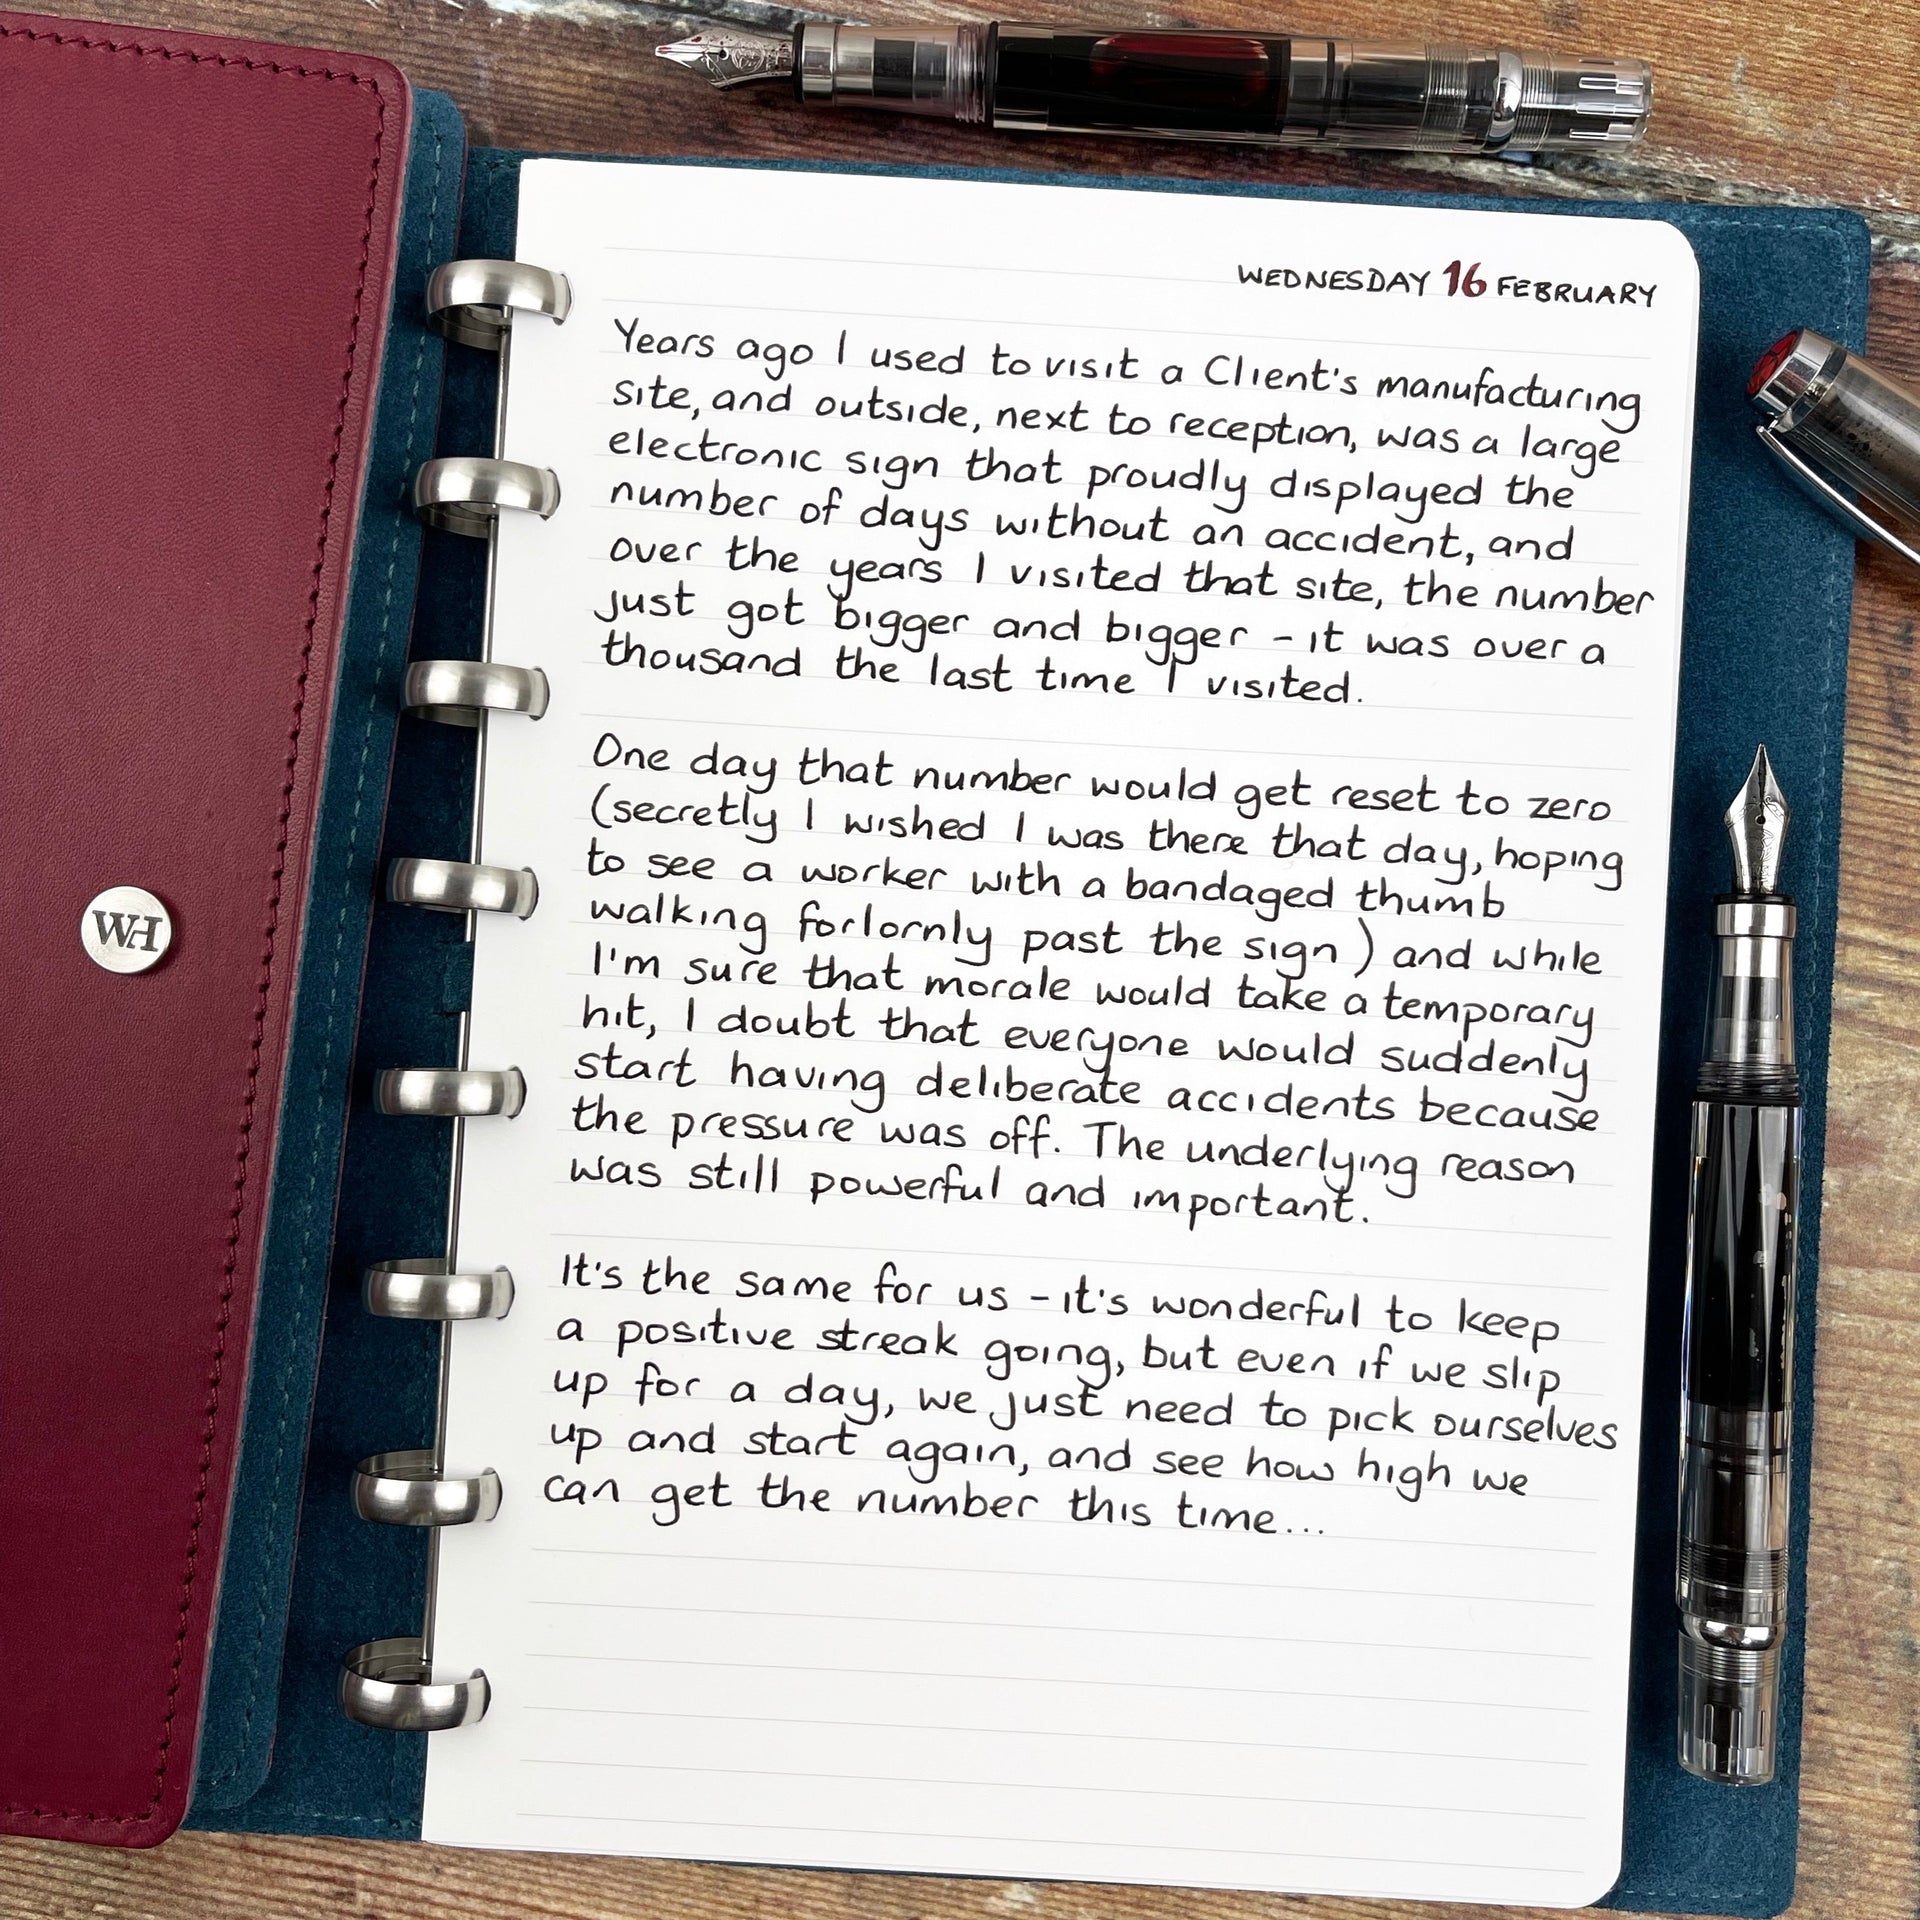 WEDNESDAY 16 FEBRUARY
Years ago I used to visit a Client's manufacturing
site, and outside, next to reception, was a large
electronic sign that proudly displayed the
number of days without an accident, and
over the years I visited that site, the number
just got bigger and bigger - it was over a
thousand the last time I visited.
One day that number would get reset to zero
(secretly I wished I was there that day, hoping
to see a worker with a bandaged thumb
walking forlornly past the sign) and while
I'm sure that morale would take a temporary
hit, I doubt that everyone would suddenly
start having deliberate accidents because
the pressure was off. The underlying reason
was still powerful and important.
It's the same for us - it's wonderful to keep
a positive streak going, but even if we slip
up for a day, we just need to pick ourselves
up and start again, and see how high we
can get the number this time...
WH